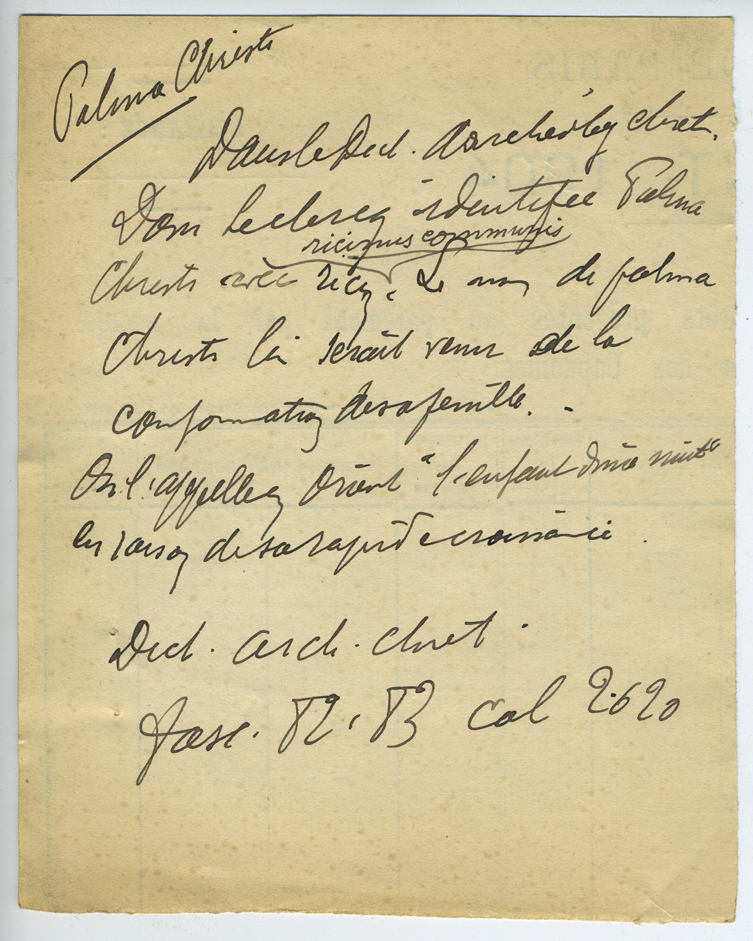 Palma Christi
Dans le Dict. Archéolog chret.
Dom Leclercq identifie Palma
ricinus communis
Christi avec ricin. Le nom de palma
Christi lui serait venu de la
conformation de sa feuille. -
On l'appelle en Orient "l'enfant d'une nuit"
en raison de sa rapide croissance.
Dict. arch. chret.
fasc. 82. 83 col 2620